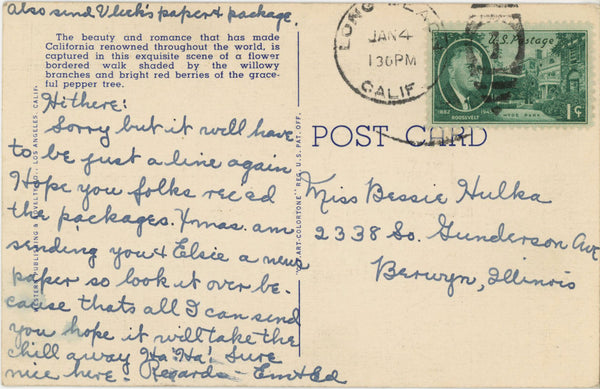 Also send Vlcek's paper & package.
The beauty and romance that has made
California renowned throughout the world, is
captured in this exquisite scene of a flower
bordered walk shaded by the willowy
branches and bright red berries of the grace-
ful pepper tree.
Hi there:
Sorry but it will have
to be just a line again
Hope you folks rec'ed
the packages. Xmas. am
sending you & Elsie a news
paper so look it over be-
cause thats all I can send
you hope it will take the
chill away Ha! Ha! Sure
nice here - Regards - Em & Ed
WESTERN PUBLISHING & NOVELTY CO., LOS ANGELES, CALIF.
"C.T. ART-COLORTONE" REG. U.S. PAT. OFF.
LONG BEACH
JAN 4
1 30 PM
CALIF.
U.S. Postage
1882 1945
ROOSEVELT
HYDE PARK
1¢
POST CARD
Miss Bessie Hulka
2338 So. Gunderson Ave
Berwyn, Illinois